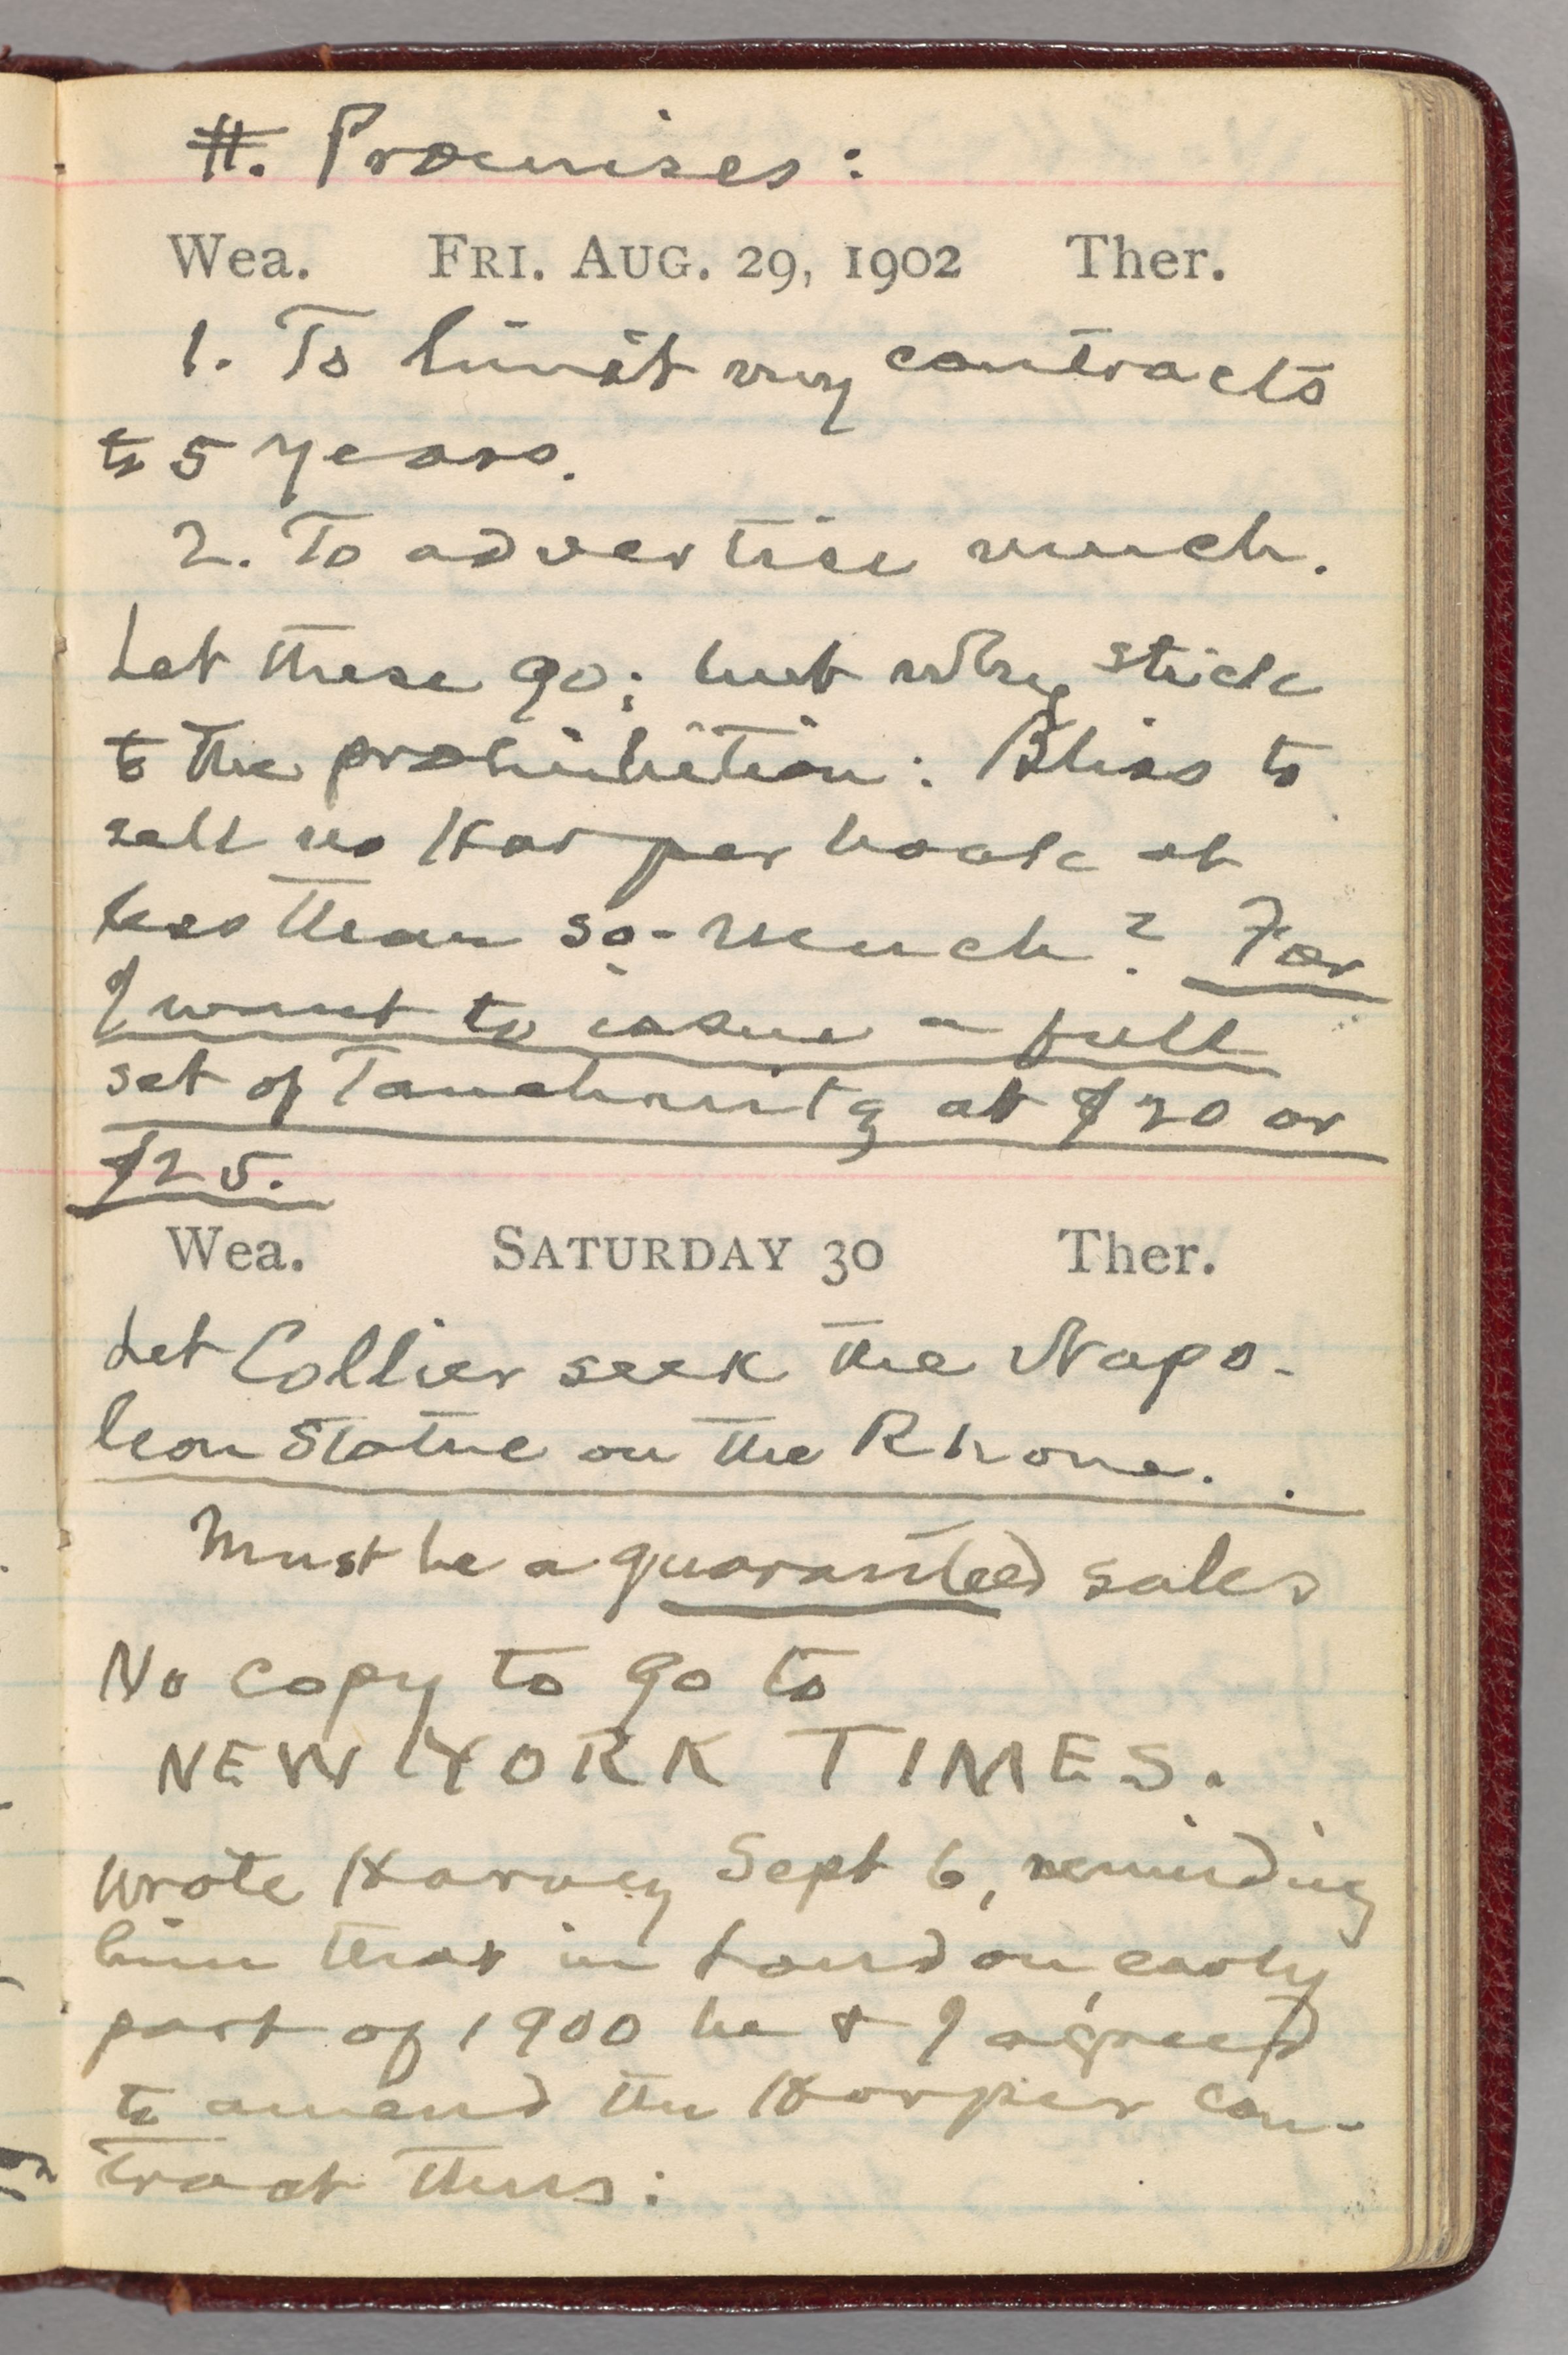 H. Promises:
Wea. FRI. AUG. 29, 1902 Ther.
1. To limit my contracts
to 5 years.
2. To advertise much.
Let these go; but why stick
to the prohibition: Bliss to
sell no Harper book at
less than so-much? For
I want to issue a full
set of Tauchnitz at $20 or
$25.
Wea. SATURDAY 30 Ther.
Let Collier seek the Napo-
leon Statue on the Rhone.
Must be a guaranteed sales
No copy to go to
NEW YORK TIMES.
Wrote Harvey Sept 6, reminding
him that in London, early
part of 1900 he & I agreed
to amend the Harper con-
tract thus: